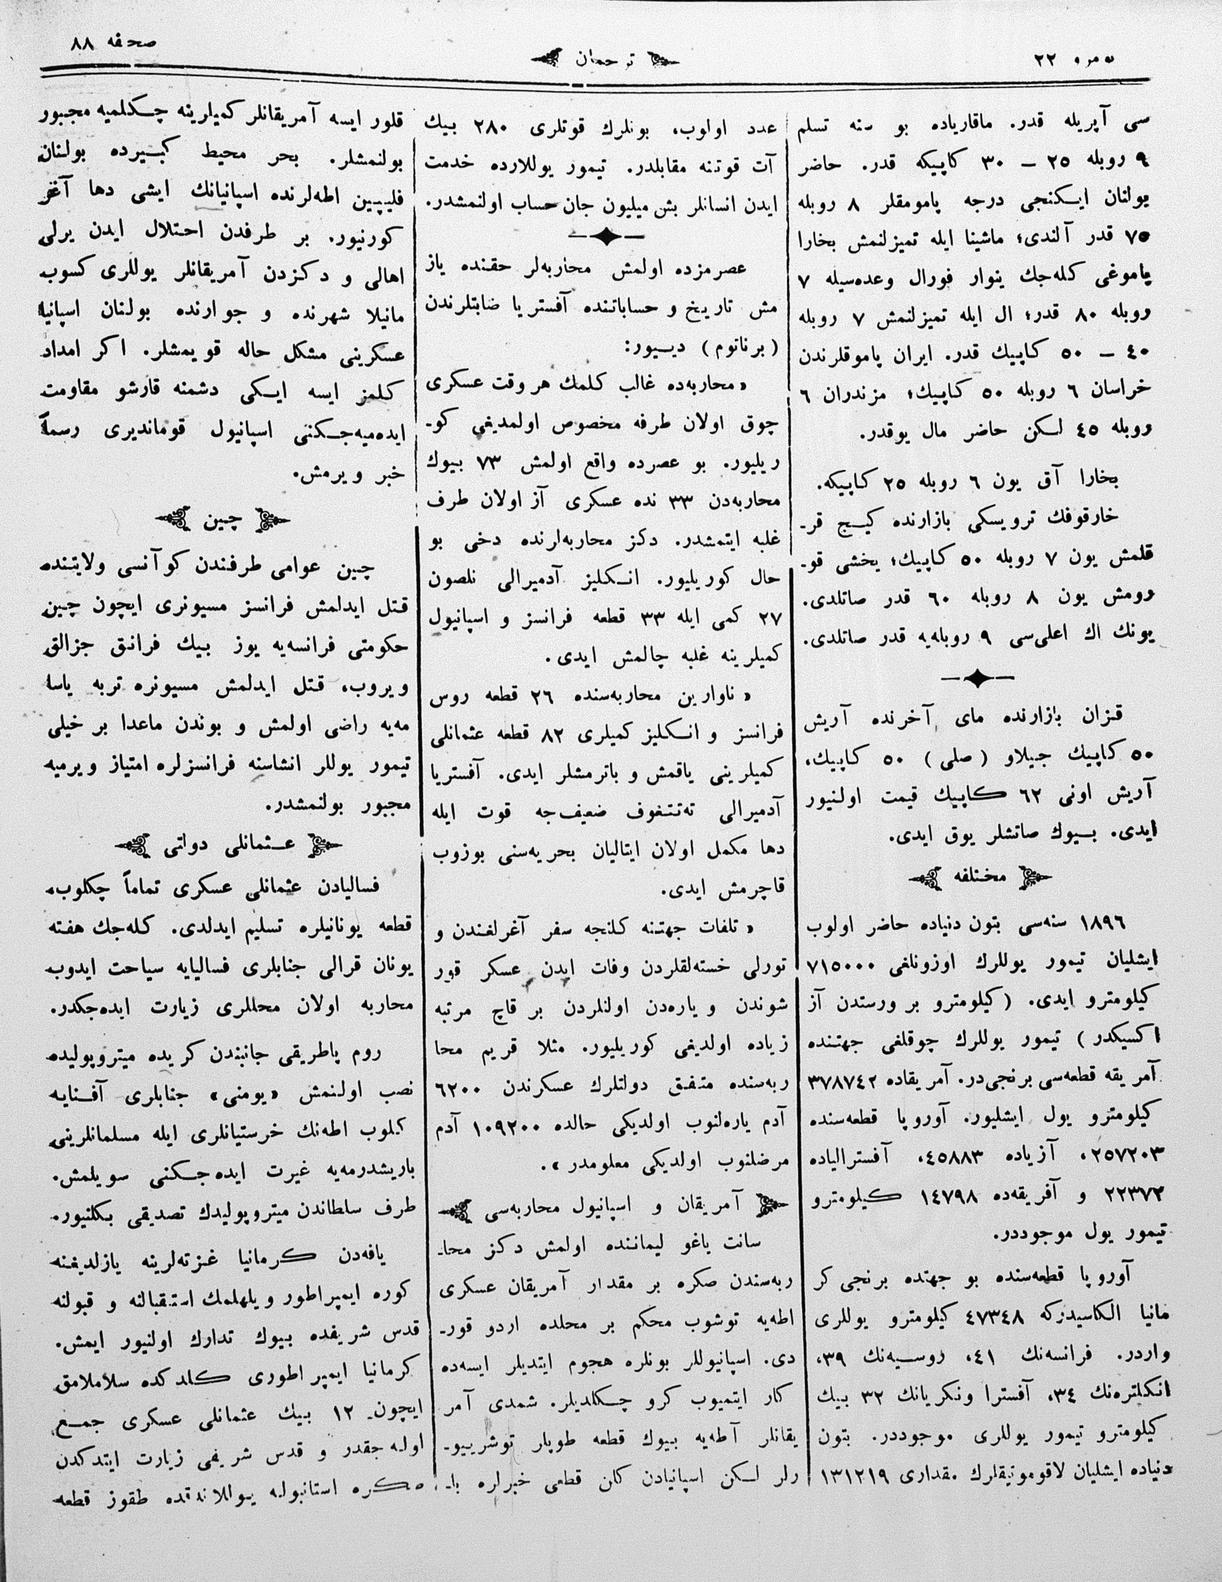 نمره ٢٢
ترجمان
صحفه ٨٨
سی آپریله قدر. ماقاریاده بو سنه تسلم
٩ روبله ٢٥ — ٣٠ کاپیکه قدر. حاضر
بولنان ایکنجی درجه پامومقلر ٨ روبله
٧٥ قدر آلندی؛ ماشینا ایله تمیزلنمش بخارا
پاموغی کله‌جك ینوار فورال وعده‌سیله ٧
روبله ٨٠ قدر؛ ال ایله تمیزلنمش ٧ روبله
٤٠ — ٥٠ کاپیك قدر. ایران پاموقلرندن
خراسان ٦ روبله ٥٠ کاپیك؛ مزندران ٦
روبله ٤٥ لکن حاضر مال یوقدر.
بخارا آق یون ٦ روبله ٢٥ کاپیکه.
خارقوفك ترویسکی بازارنده کیج قر-
قلمش یون ٧ روبله ٥٠ کاپیك؛ یخشی قو-
رومش یون ٨ روبله ٦٠ قدر صاتلدی.
یونك اك اعلی‌سی ٩ روبله‌یه قدر صاتلدی.
قزان بازارنده مای آخرنده آریش
٥٠ کاپیك جیلاو (صلی) ٥٠ کاپیك،
آریش اونی ٦٢ کاپیك قیمت اولنیور
ایدی. بیوك صاتشلر یوق ایدی.
مختلفه
١٨٩٦ سنه‌سی بتون دنیاده حاضر اولوب
ایشلیان تیمور یوللرك اوزونلغی ٧١٥٠٠٠
کیلومترو ایدی. (کیلومترو بر ورستدن آز
اکسیکدر) تیمور یوللرك چوقلغی جهتنده
آمریقه قطعه‌سی برنجی‌در. آمریقاده ٣٧٨٧٤٢
کیلومترو یول ایشلیور. آوروپا قطعه‌سنده
٢٥٧٢٠٣، آزیاده ٤٥٨٨٣، آفسترالیاده
٢٢٣٧٢ و آفریقه‌ده ١٤٧٩٨ کیلومترو
تیمور یول موجوددر.
آوروپا قطعه‌سنده بو جهتده برنجی کر
مانیا الکاسیدرکه ٤٧٣٤٨ کیلومترو یوللری
واردر. فرانسه‌نك ٤١، روسیه‌نك ٣٩،
انکلتره‌نك ٣٤، آفسترا ونکریانك ٣٢ بیك
کیلومترو تیمور یوللری موجوددر. بتون
دنیاده ایشلیان لاقوموتیقلرك مقداری ١٣١٢١٩
عدد اولوب، بونلرك قوتلری ٢٨٠ بیك
آت قوتنه مقابلدر. تیمور یوللارده خدمت
ایدن انسانلر بش میلیون جان حساب اولنمشدر.
عصرمزده اولمش محاربه‌لر حقنده یاز
مش تاریخ و حساباتنده آفستریا ضابتلرندن
(برناتوم) دیور:
« محاربه‌ده غالب کلمك هر وقت عسکری
چوق اولان طرفه مخصوص اولمدیغی کو-
ریلیور. بو عصرده واقع اولمش ٧٣ بیوك
محاربه‌دن ٣٣ نده عسکری آز اولان طرف
غلبه ایتمشدر. دکز محاربه‌لرنده دخی بو
حال کوریلیور. انکلیز آدمیرالی نلصون
٢٧ کمی ایله ٣٣ قطعه فرانسز و اسپانیول
کمیلرینه غلبه چالمش ایدی.
« ناوارین محاربه‌سنده ٢٦ قطعه روس
فرانسز و انکلیز کمیلری ٨٢ قطعه عثمانلی
کمیلرینی یاقمش و باترمشلر ایدی. آفستریا
آدمیرالی ته‌تتغوف ضعیف‌جه قوت ایله
دها مکمل اولان ایتالیان بحریه‌سنی بوزوب
قاچرمش ایدی.
« تلفات جهتنه کلنجه سفر آغرلغندن و
تورلی خسته‌لقلردن وفات ایدن عسکر قور
شوندن و یاره‌دن اولنلردن بر قاچ مرتبه
زیاده اولدیغی کوریلیور. مثلا قریم محا
ربه‌سنده متفق دولتلرك عسکرندن ٦٢٠٠
آدم یاره‌لنوب اولدیکی حالده ١٠٩٢٠٠ آدم
مرضلنوب اولدیکی معلومدر ».
آمریقان و اسپانیول محاربه‌سی
سانت یاغو لیماننده اولمش دکز محا-
ربه‌سندن صکره بر مقدار آمریقان عسکری
اطه‌یه توشوب محکم بر محلده اردو قور-
دی. اسپانیوللر بونلره هجوم ایتدیلر ایسه‌ده
کار ایتمیوب کرو چکلدیلر. شمدی آمر
یقانلر آطه‌یه بیوك قطعه طوپلر توشرییو-
رلر لکن اسپانیادن کلن قطعی خبرلره با-
قلور ایسه آمریقانلر کمیلرینه چکلمیه مجبور
بولنمشلر. بحر محیط کبیرده بولنان
فلیپین اطه‌لرنده اسپانیانك ایشی دها آغر
کورنیور. بر طرفدن احتلال ایدن یرلی
اهالی و دکزدن آمریقانلر یوللری کسوب
مانیلا شهرنده و جوارنده بولنان اسپانیا
عسکرینی مشکل حاله قویمشلر. اکر امداد
کلمز ایسه ایکی دشمنه قارشو مقاومت
ایده‌میه‌جکنی اسپانیول قوماندیری رسماً
خبر ویرمش.
چین
چین عوامی طرفندن کوآنسی ولایتنده
قتل ایدلمش فرانسز مسیونری ایچون چین
حکومتی فرانسه‌یه یوز بیك فرانق جزالق
ویروب، قتل ایدلمش مسیونره تربه یاسا
مه‌یه راضی اولمش و بوندن ماعدا بر خیلی
تیمور یوللر انشاسنه فرانسزلره امتیاز ویرمیه
مجبور بولنمشدر.
عثمانلی دولتی
فسالیادن عثمانلی عسکری تماماً چکلوب،
قطعه یونانیلره تسلیم ایدلدی. کله‌جك هفته
یونان قرالی جنابلری فسالیایه سیاحت ایدوب
محاربه اولان محللری زیارت ایده‌جکدر.
روم پاطریقی جانبندن کریده میتروپولیده
نصب اولنمش «یومنی» جنابلری آفنایه
کلوب اطه‌نك خرستیانلری ایله مسلمانلرینی
باریشدرمه‌یه غیرت ایده‌جکنی سویلمش.
طرف سلطاندن میتروپولیدك تصدیقی بکلنیور.
یافه‌دن کرمانیا غزته‌لرینه یازلدیغنه
کوره ایمپراطور ویلهلمك استقبالنه و قبولنه
قدس شریفده بیوك تدارك اولنیور ایمش.
کرمانیا ایمپراطوری کلدکده سلاملامق
ایچون ١٢ بیك عثمانلی عسکری جمع
اوله‌جقدر و قدس شریفی زیارت ایتدکدن
صکره استانبوله یوللانه‌قده طقوز قطعه